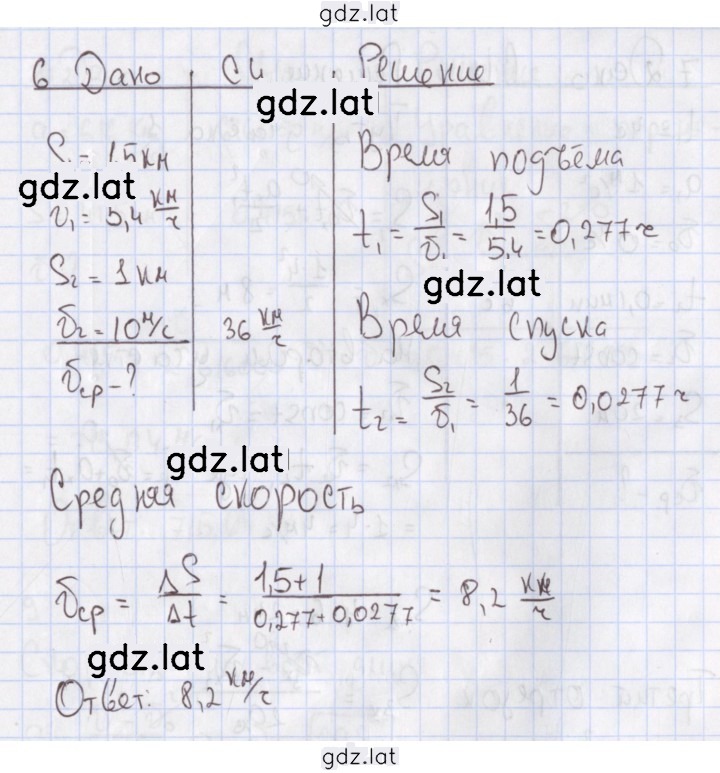 gdz.lat
6 Дано СИ Решение
gdz.lat
S₁ = 1,5 км
gdz.lat
υ₁ = 5,4 км/ч
S₂ = 1 км
υ₂ = 10 м/с 36 км/ч
υср - ?
Время подъёма
t₁ = S₁/υ₁ = 1,5/5,4 = 0,277 ч
gdz.lat
Время спуска
t₂ = S₂/υ₁ = 1/36 = 0,0277 ч
gdz.lat
Средняя скорость
υср = ΔS/Δt = 1,5+1/0,277+0,0277 = 8,2 км/ч
gdz.lat
Ответ: 8,2 км/ч
gdz.lat